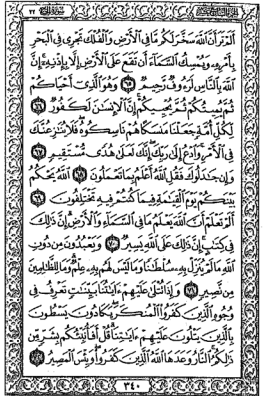 أَلَمْ تَرَ أَنَّ ٱللَّهَ سَخَّرَ لَكُم مَّا فِى ٱلْأَرْضِ وَٱلْفُلْكَ تَجْرِى فِى ٱلْبَحْرِ
بِأَمْرِهِۦ وَيُمْسِكُ ٱلسَّمَآءَ أَن تَقَعَ عَلَى ٱلْأَرْضِ إِلَّا بِإِذْنِهِۦٓ إِنَّ
ٱللَّهَ بِٱلنَّاسِ لَرَءُوفٌ رَّحِيمٌ ٦٥ وَهُوَ ٱلَّذِىٓ أَحْيَاكُمْ
ثُمَّ يُمِيتُكُمْ ثُمَّ يُحْيِيكُمْ إِنَّ ٱلْإِنسَٰنَ لَكَفُورٌ ٦٦
لِّكُلِّ أُمَّةٍ جَعَلْنَا مَنسَكًا هُمْ نَاسِكُوهُ فَلَا يُنَٰزِعُنَّكَ
فِى ٱلْأَمْرِ وَٱدْعُ إِلَىٰ رَبِّكَ إِنَّكَ لَعَلَىٰ هُدًى مُّسْتَقِيمٍ ٦٧
وَإِن جَٰدَلُوكَ فَقُلِ ٱللَّهُ أَعْلَمُ بِمَا تَعْمَلُونَ ٦٨ ٱللَّهُ يَحْكُمُ
بَيْنَكُمْ يَوْمَ ٱلْقِيَٰمَةِ فِيمَا كُنتُمْ فِيهِ تَخْتَلِفُونَ ٦٩
أَلَمْ تَعْلَمْ أَنَّ ٱللَّهَ يَعْلَمُ مَا فِى ٱلسَّمَآءِ وَٱلْأَرْضِ إِنَّ ذَٰلِكَ
فِى كِتَٰبٍ إِنَّ ذَٰلِكَ عَلَى ٱللَّهِ يَسِيرٌ ٧٠ وَيَعْبُدُونَ مِن دُونِ
ٱللَّهِ مَا لَمْ يُنَزِّلْ بِهِۦ سُلْطَٰنًا وَمَا لَيْسَ لَهُم بِهِۦ عِلْمٌ وَمَا لِلظَّٰلِمِينَ
مِن نَّصِيرٍ ٧١ وَإِذَا تُتْلَىٰ عَلَيْهِمْ ءَايَٰتُنَا بَيِّنَٰتٍ تَعْرِفُ فِى
وُجُوهِ ٱلَّذِينَ كَفَرُوا۟ ٱلْمُنكَرَ يَكَادُونَ يَسْطُونَ
بِٱلَّذِينَ يَتْلُونَ عَلَيْهِمْ ءَايَٰتِنَا قُلْ أَفَأُنَبِّئُكُم بِشَرٍّ مِّن
ذَٰلِكُمُ ٱلنَّارُ وَعَدَهَا ٱللَّهُ ٱلَّذِينَ كَفَرُوا۟ وَبِئْسَ ٱلْمَصِيرُ ٧٢
٣٤٠